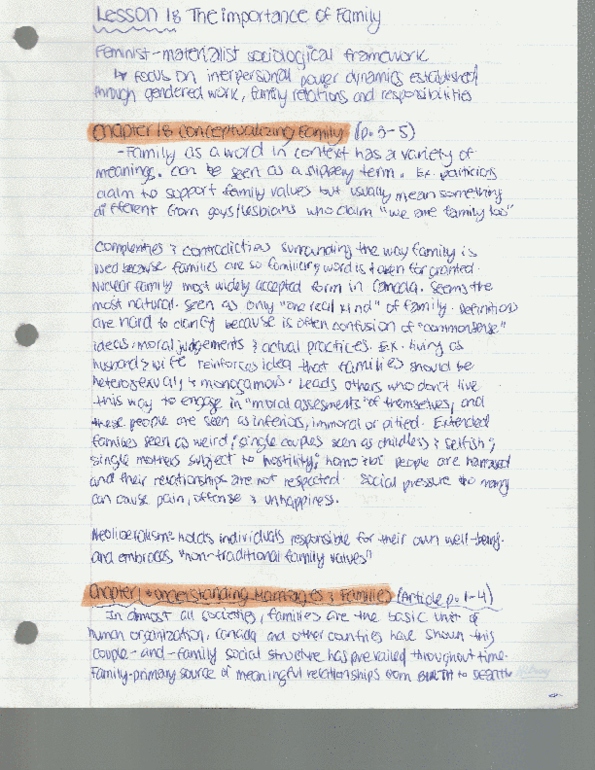 Lesson 1: The importance of Family
Feminist-materialist sociological framework
↳ focus on interpersonal power dynamics established
through gendered work, family relations and responsibilities
Chapter 1: conceptualizing Family (p. 3-5)
-Family as a word in context has a variety of
meanings. can be seen as a slippery term. Ex. politicians
claim to support family values but usually mean something
different from gays/lesbians who claim "we are family too"
Complexities & contradictions surrounding the way family is
used because families are so familiar, word is taken for granted.
Nuclear family most widely accepted form in Canada. Seems the
most natural. seen as only "one real kind" of family. Definitions
are hard to clarify because is often confusion of "commonsense"
ideas, moral judgements & actual practices. Ex. living as
husband & wife reinforces idea that families should be
heterosexual & monogamous. Leads others who don't live
this way to engage in "moral assesments" of themselves, and
these people are seen as inferiors, immoral or pitied. Extended
families seen as weird, single couples seen as childless & selfish,
single mothers subject to hostility, people are harrased
and their relationships are not respected. Social pressure to marry
can cause pain, offense & unhappiness.
Neoliberalism: holds individuals responsible for their own well-being.
and embraces "non-traditional family values"
Chapter 1: understanding Marriages & Families (Article p. 1-4)
In almost all societies, families are the basic unit of
human organization, canada and other countries have shown this
couple-and-family social structure has prevailed throughout time.
Family-primary source of meaningful relationships from BIRTH to DEATH